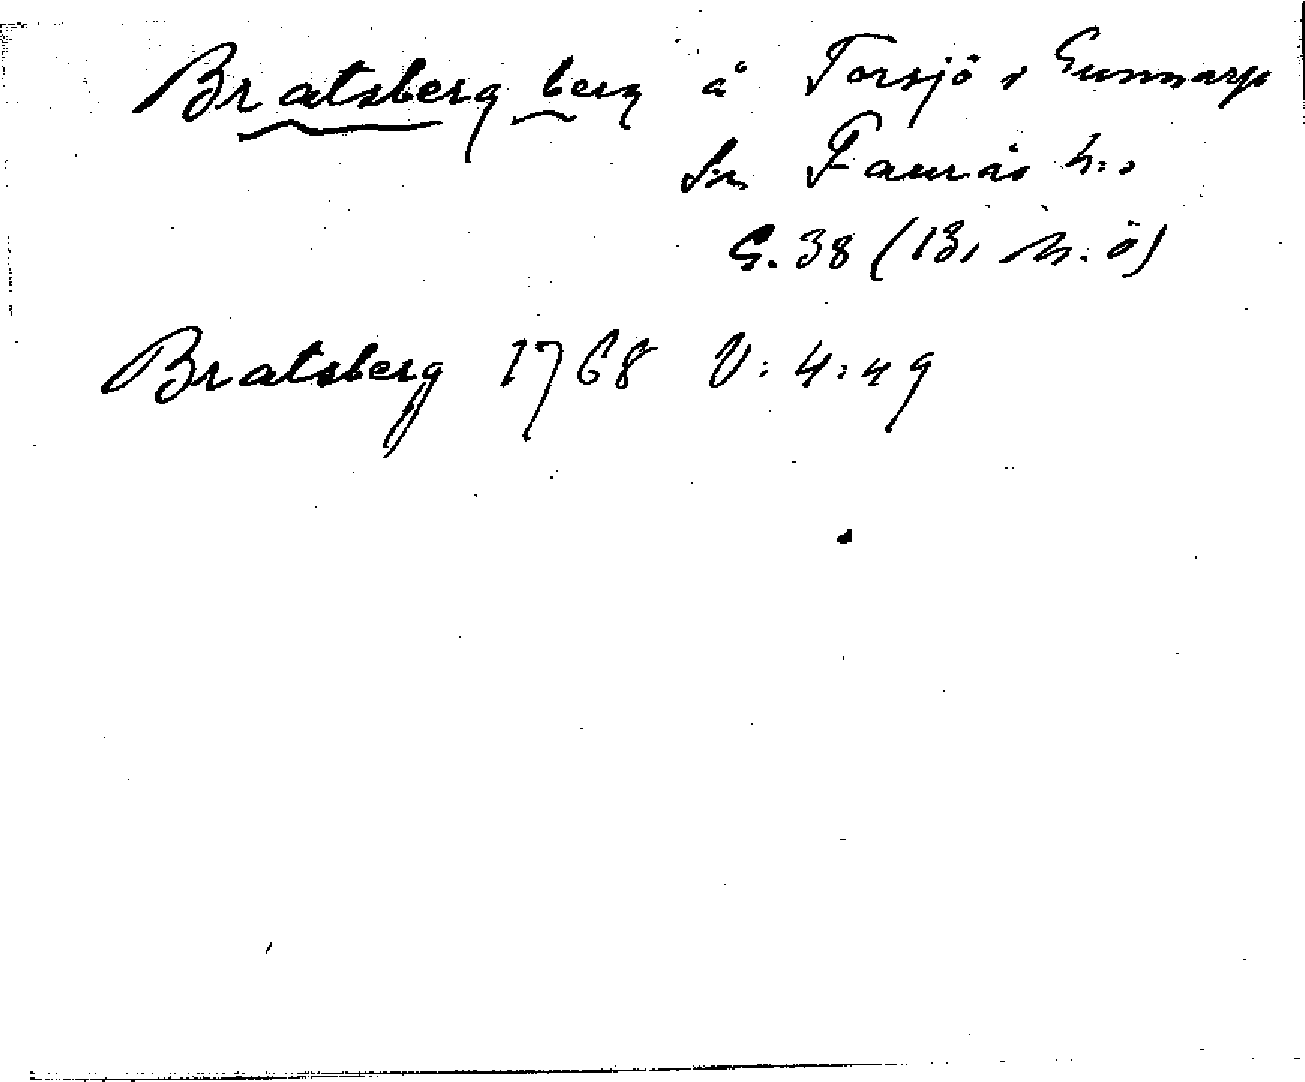 Bratsberg berg å Torsjö s Gunnarp
sn Faurås h:s
G. 38 (13, N. ö)
Bratsberg 1768 V: 4: 49